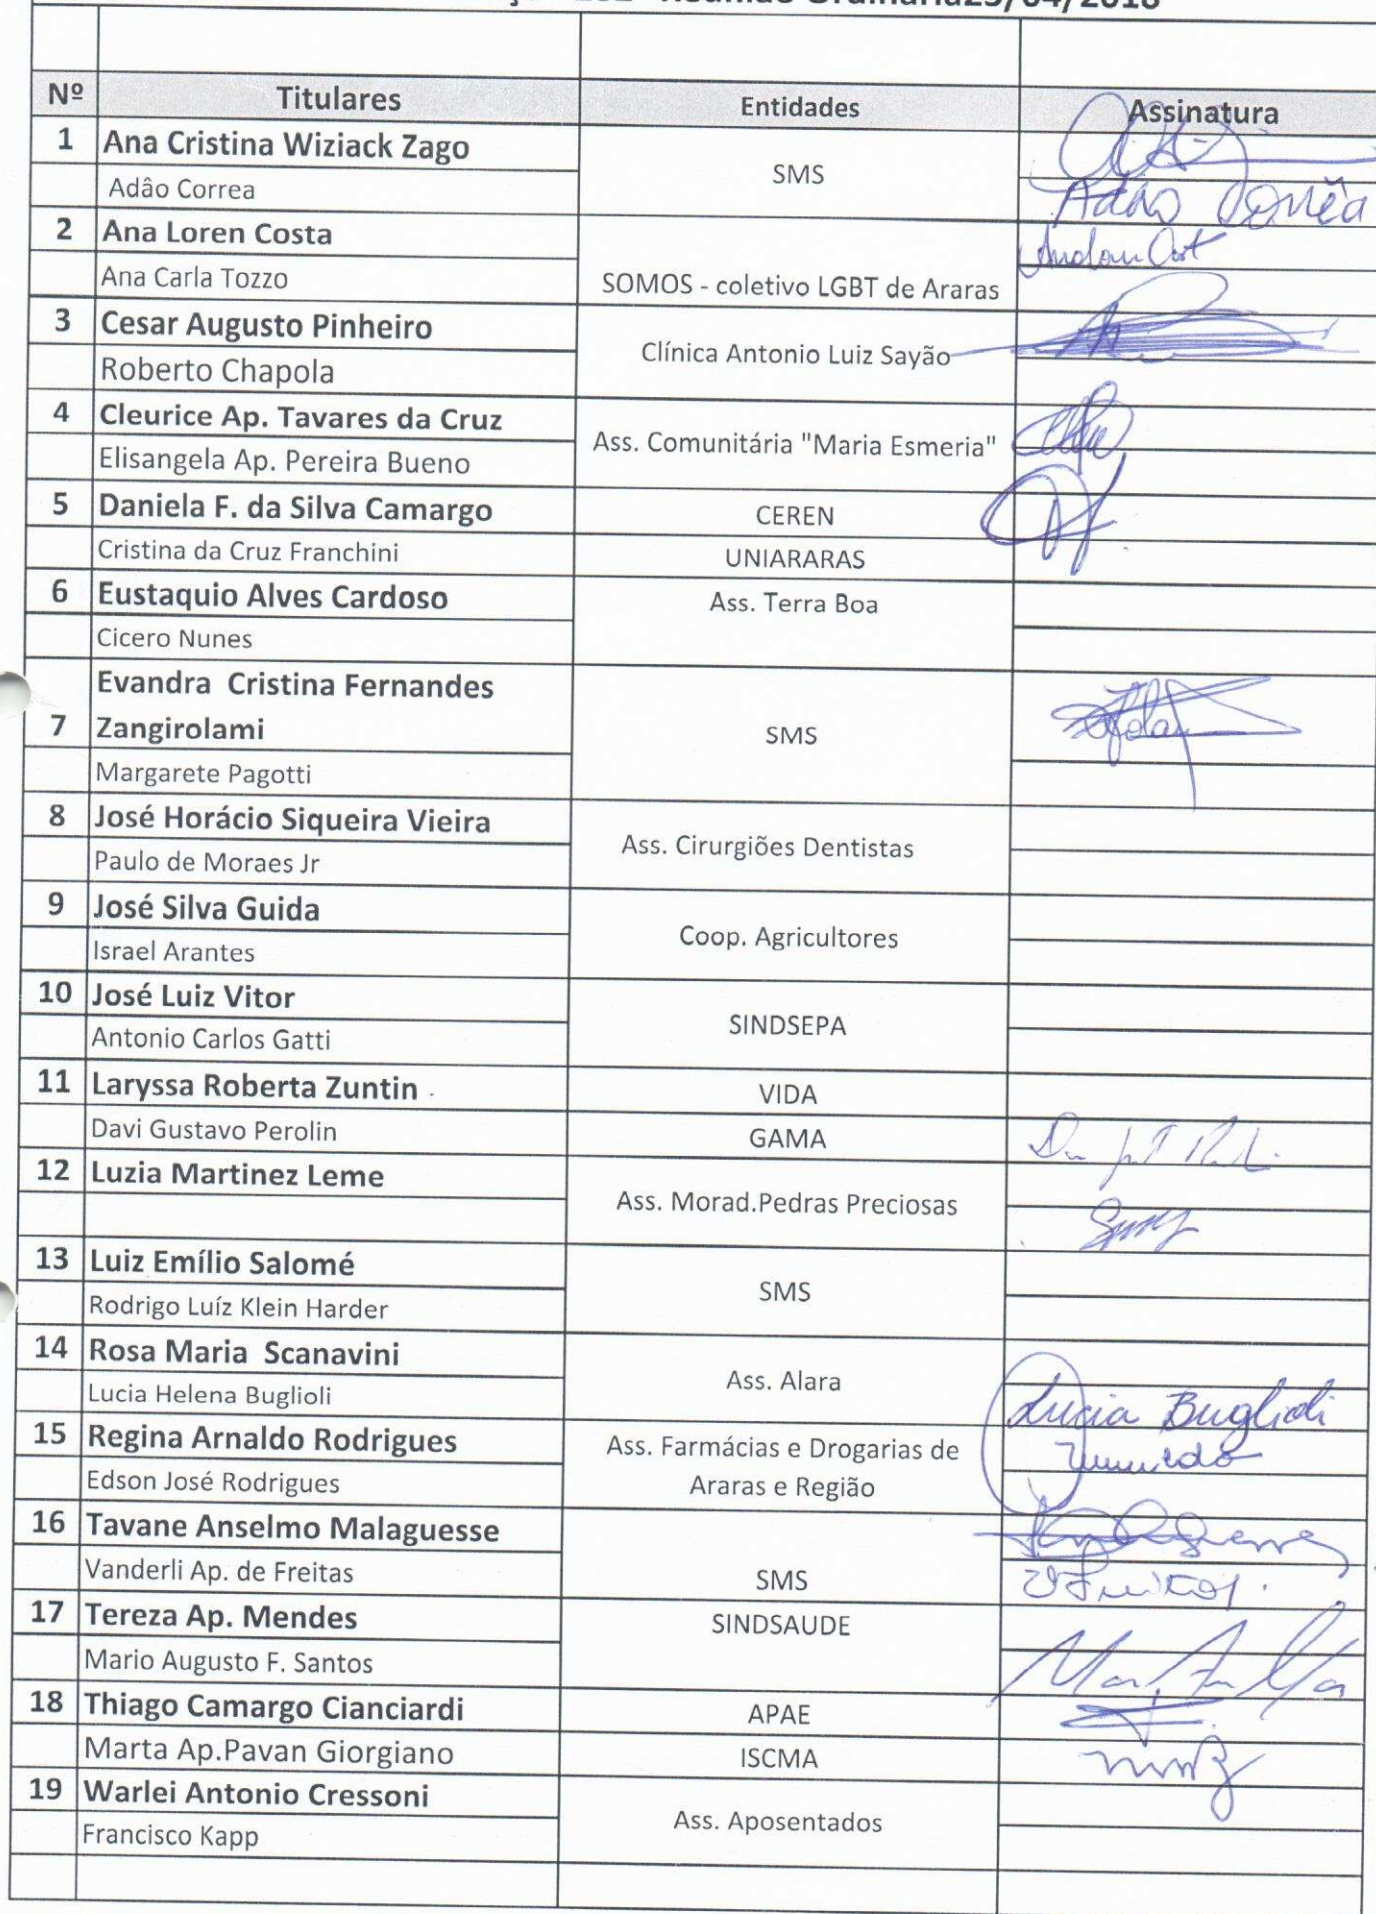 Reunião Ordinária25/04/2018
Nº Titulares Entidades Assinatura
1 Ana Cristina Wiziack Zago
SMS
Adâo Correa Adão Corrêa
2 Ana Loren Costa
Ana Carla Tozzo SOMOS - coletivo LGBT de Araras
3 Cesar Augusto Pinheiro
Clínica Antonio Luiz Sayão
Roberto Chapola
4 Cleurice Ap. Tavares da Cruz
Ass. Comunitária "Maria Esmeria"
Elisangela Ap. Pereira Bueno
5 Daniela F. da Silva Camargo CEREN
Cristina da Cruz Franchini UNIARARAS
6 Eustaquio Alves Cardoso Ass. Terra Boa
Cicero Nunes
Evandra Cristina Fernandes
7 Zangirolami SMS
Margarete Pagotti
8 José Horácio Siqueira Vieira
Ass. Cirurgiões Dentistas
Paulo de Moraes Jr
9 José Silva Guida
Coop. Agricultores
Israel Arantes
10 José Luiz Vitor
SINDSEPA
Antonio Carlos Gatti
11 Laryssa Roberta Zuntin VIDA
Davi Gustavo Perolin GAMA
12 Luzia Martinez Leme
Ass. Morad.Pedras Preciosas
13 Luiz Emílio Salomé
SMS
Rodrigo Luíz Klein Harder
14 Rosa Maria Scanavini
Ass. Alara
Lucia Helena Buglioli Lucia Buglioli
15 Regina Arnaldo Rodrigues Ass. Farmácias e Drogarias de
Edson José Rodrigues Araras e Região
16 Tavane Anselmo Malaguesse
Vanderli Ap. de Freitas SMS
17 Tereza Ap. Mendes SINDSAUDE
Mario Augusto F. Santos
18 Thiago Camargo Cianciardi APAE
Marta Ap.Pavan Giorgiano ISCMA
19 Warlei Antonio Cressoni
Ass. Aposentados
Francisco Kapp